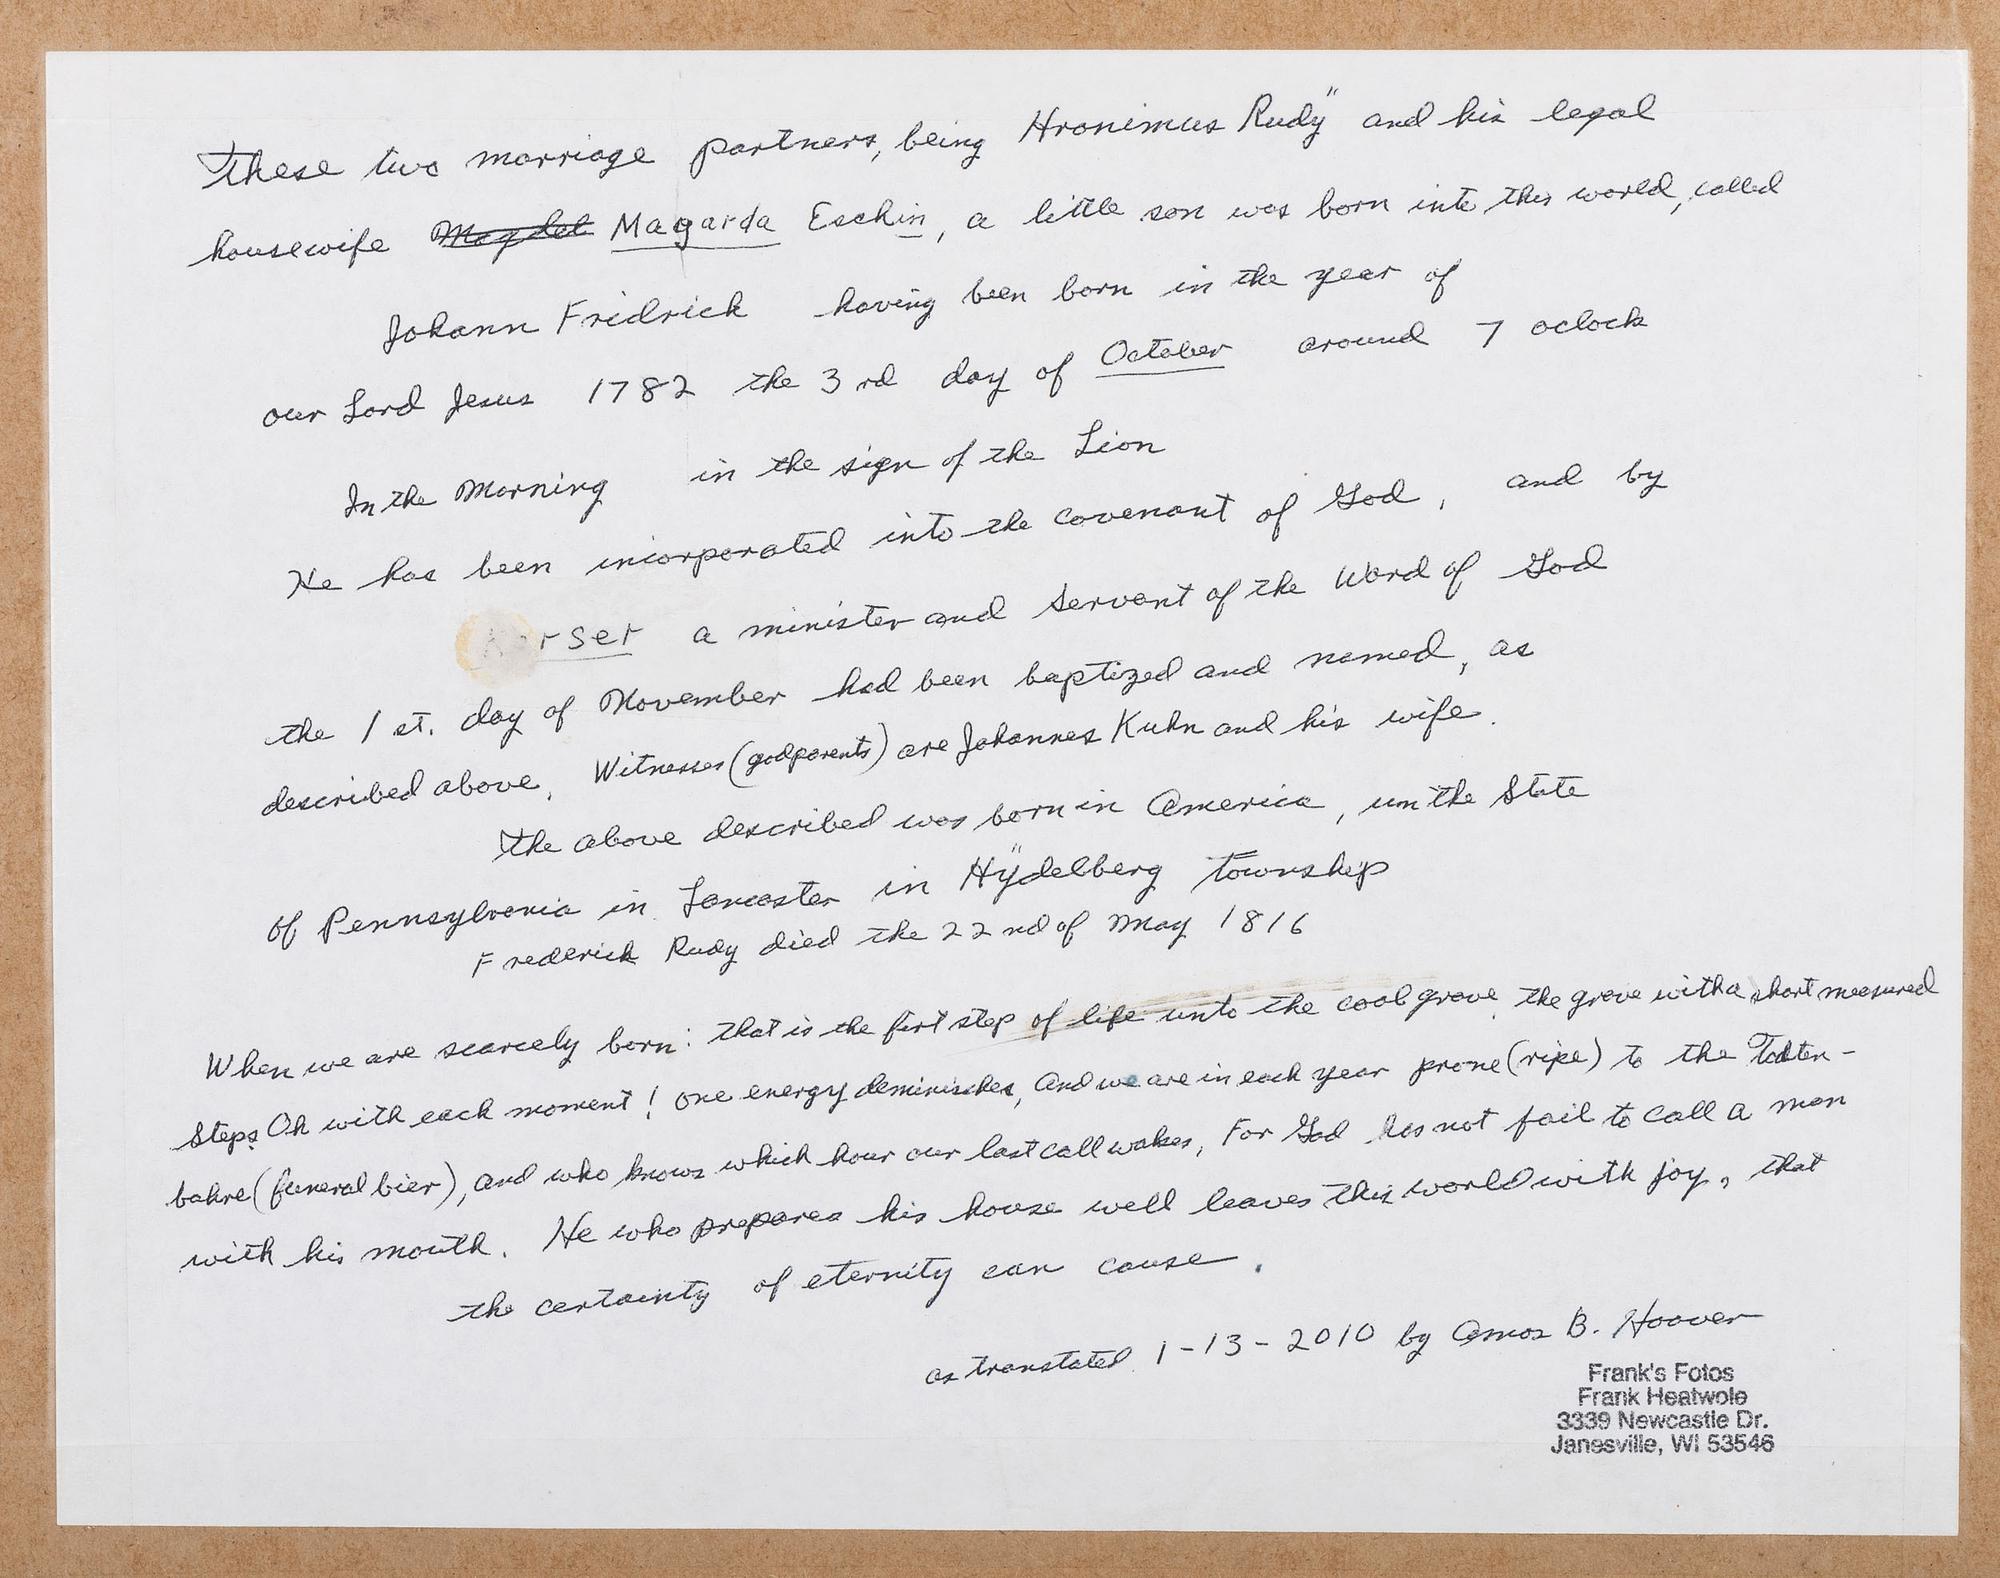 These two marriage partners, being Hronimus Rudÿ and his legal
housewife Magdal Magarda Eschin, a little son was born into this world, called
Johann Fridrich having been born in the year of
our Lord Jesus 1782 the 3rd day of October around 7 oclock
In the Morning in the sign of the Lion
He has been incorporated into the covenant of God, and by
rser a minister and servant of the Word of God
the 1st. day of November had been baptized and named, as
described above, Witnesses (godparents) are Johannes Kuhn and his wife.
The above described was born in America, un the State
of Pennsylvania in Lancaster in Hÿdelberg township
Frederick Rudy died the 22nd of May 1816
When we are scarcely born: that is the firt step of life unto the cool grove, the grove with a short measured
steps Oh with each moment! one energy deminisches, And we are in each year prone (ripe) to the Todten-
bahre (funeral bier), and who knows which hour our last call wakes, For God has not fail to call a man
with his mouth. He who prepares his house well leaves this world with joy, that
the certainty of eternity can cause.
as translated 1-13-2010 by Amos B. Hoover
Frank's Fotos
Frank Heatwole
3339 Newcastle Dr.
Janesville, WI 53546